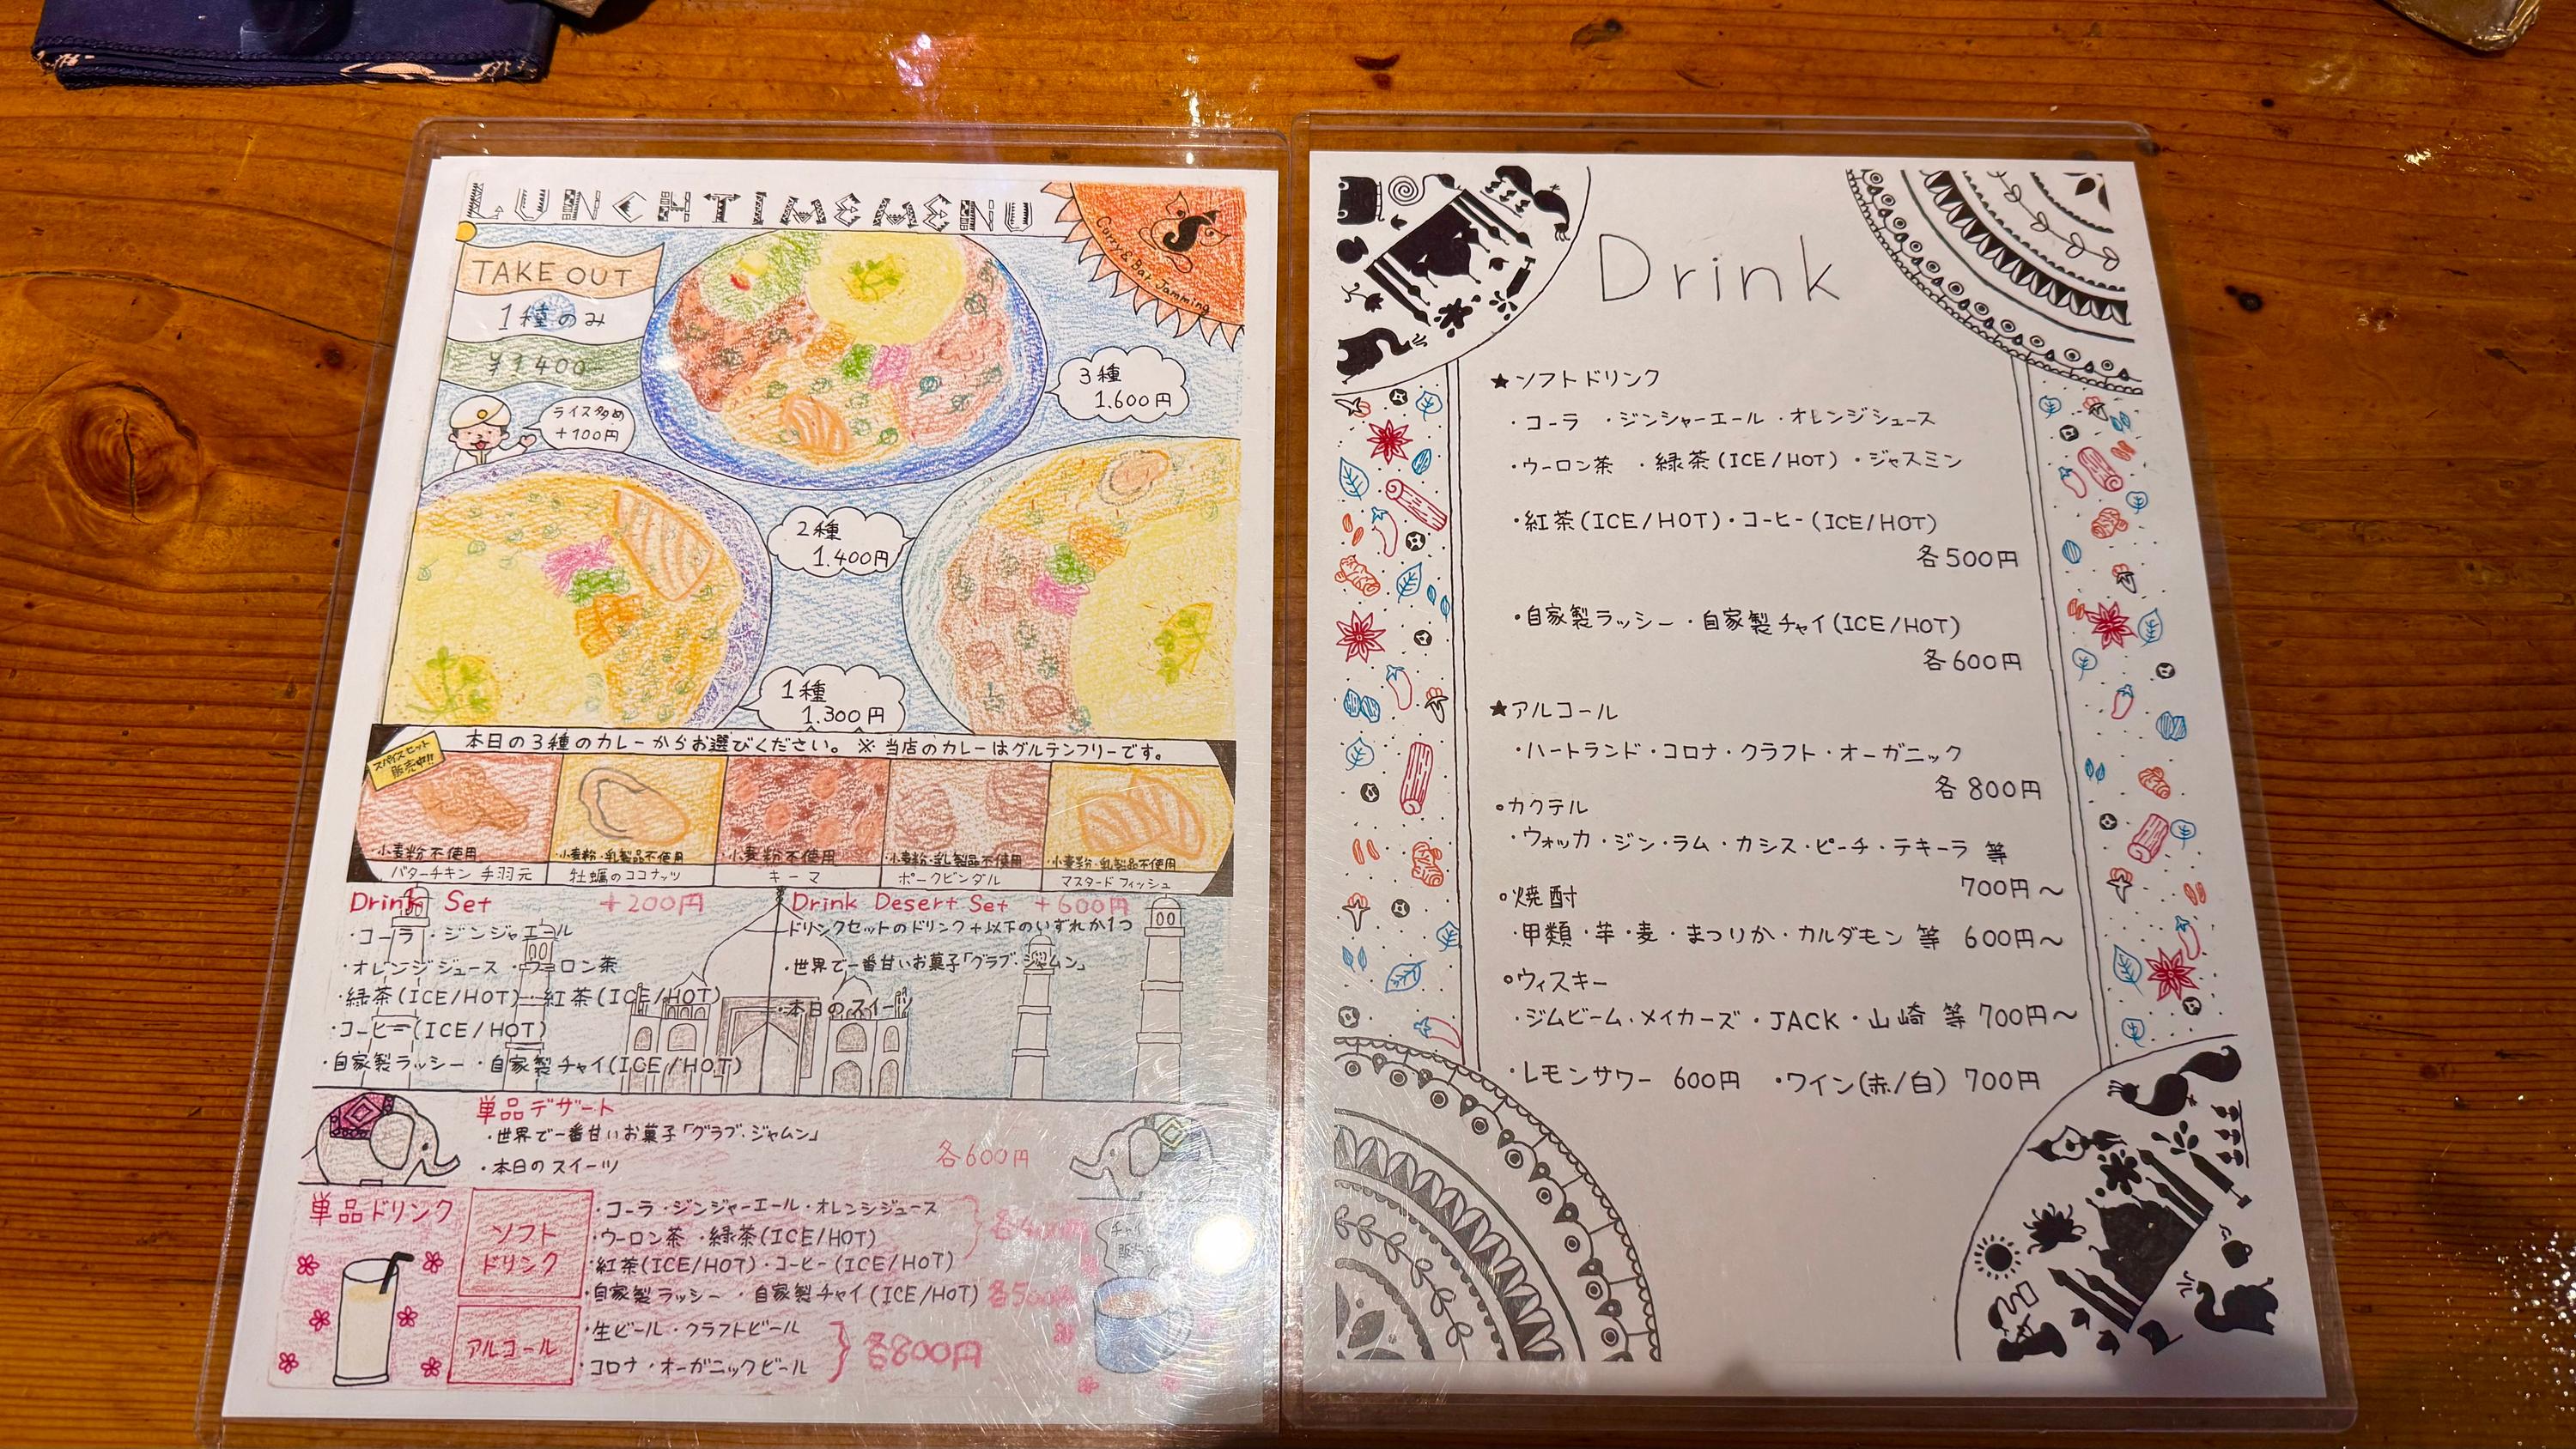 LUNCHTIMEMENU
Curry & Bar Jamming
TAKE OUT
1種のみ
¥1400-
ライス多め
+100円
3種
1.600円
2種
1.400円
1種
1.300円
スパイスセット
販売中!!
本日の3種のカレーからお選びください。 ※当店のカレーはグルテンフリーです。
・小麦粉不使用
バターチキン 手羽元
・小麦粉・乳製品不使用
牡蠣のココナッツ
・小麦粉不使用
キーマ
・小麦粉・乳製品不使用
ポークビンダル
・小麦粉・乳製品不使用
マスタードフィッシュ
Drink Set +200円
・コーラ ・ジンジャエール
・オレンジジュース ・ウーロン茶
・緑茶(ICE/HOT)・紅茶(ICE/HOT)
・コーヒー(ICE/HOT)
・自家製ラッシー ・自家製チャイ(ICE/HOT)
Drink Desert Set +600円
ドリンクセットのドリンク+以下のいずれか1つ
・世界で一番甘いお菓子「グラブ・ジャムン」
・本日のスイーツ
単品デザート
・世界で一番甘いお菓子「グラブ・ジャムン」
・本日のスイーツ
各600円
単品ドリンク
ソフト
ドリンク
・コーラ・ジンジャーエール・オレンジジュース
・ウーロン茶 ・緑茶(ICE/HOT)
・紅茶(ICE/HOT)・コーヒー(ICE/HOT)
・自家製ラッシー ・自家製チャイ(ICE/HOT) 各500円
アルコール
・生ビール・クラフトビール
・コロナ・オーガニックビール
各800円
Drink
★ソフトドリンク
・コーラ ・ジンシャーエール ・オレンジシュース
・ウーロン茶 ・緑茶(ICE/HOT) ・ジャスミン
・紅茶(ICE/HOT)・コーヒー(ICE/HOT)
各500円
・自家製ラッシー ・自家製チャイ(ICE/HOT)
各600円
★アルコール
・ハートランド・コロナ・クラフト・オーガニック
各800円
○カクテル
・ウォッカ・ジン・ラム・カシス・ピーチ・テキーラ 等
700円～
○焼酎
・甲類・芋・麦・まつりか・カルダモン 等 600円～
○ウィスキー
・ジムビーム・メイカーズ・JACK・山崎 等 700円～
・レモンサワー 600円 ・ワイン(赤/白) 700円